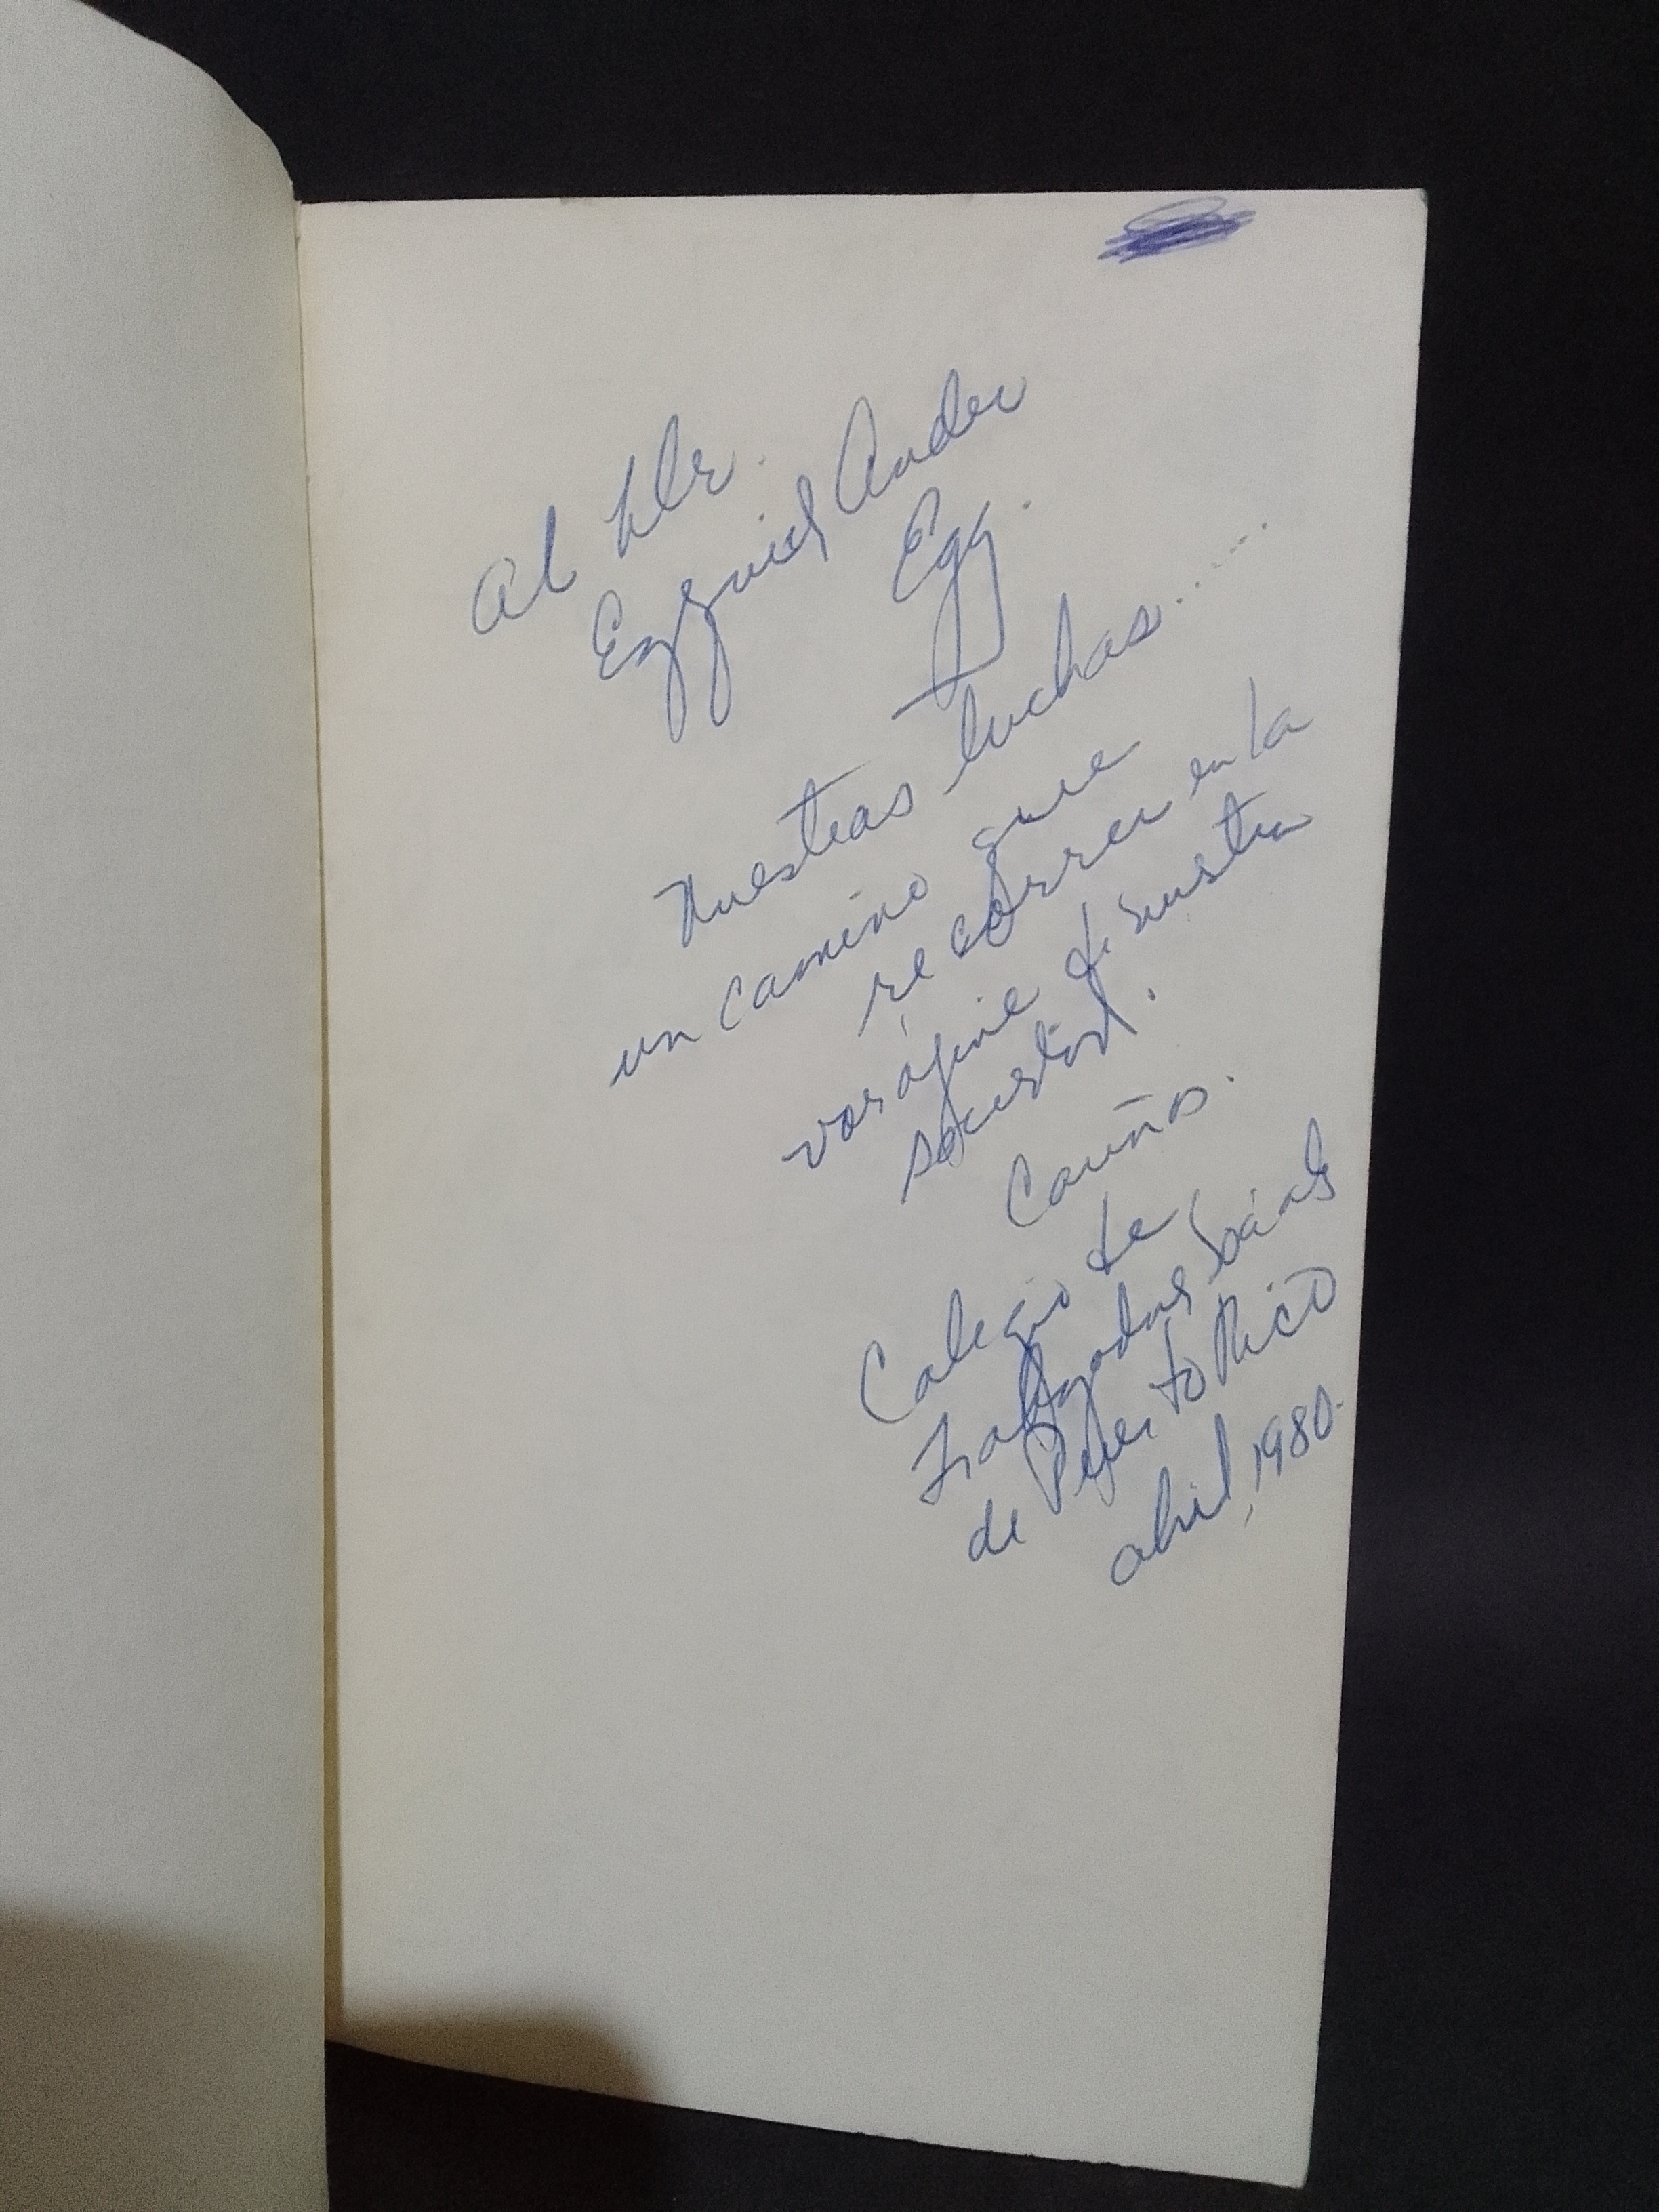 Al Dr.
Ezequiel Ander
Egg.
Nuestras luchas......
un camino que
recorrer en la
vorágine de nuestra
sociedad.
Cariños.
Colegio de
Trabajadores Sociales
de Puerto Rico
abril, 1980.